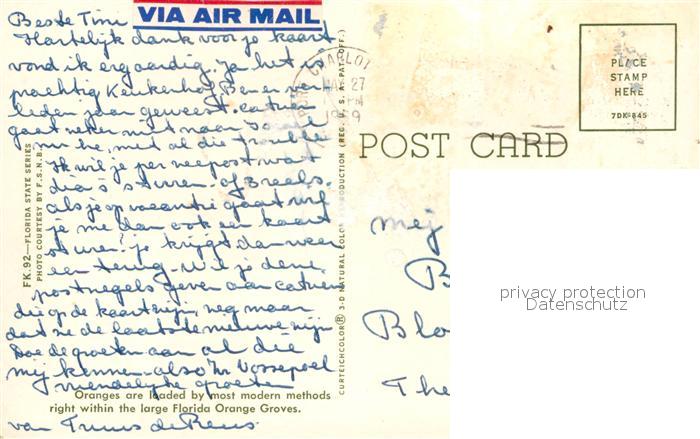 VIA AIR MAIL
Beste Tini
Hartelijk dank voor je kaart
vond ik erg aardig. Ja het is
prachtig Keukenhof Ben er ver-
leden jaar geweest.
gaat zeker niet naar
nu he, met al die trouble
Ik wil je per zeepost wat
dia's sturen of Breels.
als je op vacantie gaat wil
je me dan ook een kaart
sturen? je krijgt dan weer
een terug. Wil je deze
postzegels geven aan
die op de kaart zijn, zeg maar
dat ze de laatste nieuwe zijn
Doe de groeten aan al die
mij kennen - also Mr Vossepoel
vriendelijke groeten
van Truus de Reus
Oranges are loaded by most modern methods
right within the large Florida Orange Groves.
FK.92—FLORIDA STATE SERIES
PHOTO COURTESY BY F.S.N.B.
CURTEICHCOLOR® 3-D NATURAL COLOR REPRODUCTION (REG. U.S.A. PAT. OFF.)
PORT CHARLOT
27
PM
POST CARD
PLACE
STAMP
HERE
7DK-845
mej
B
Blo
The
privacy protection
Datenschutz